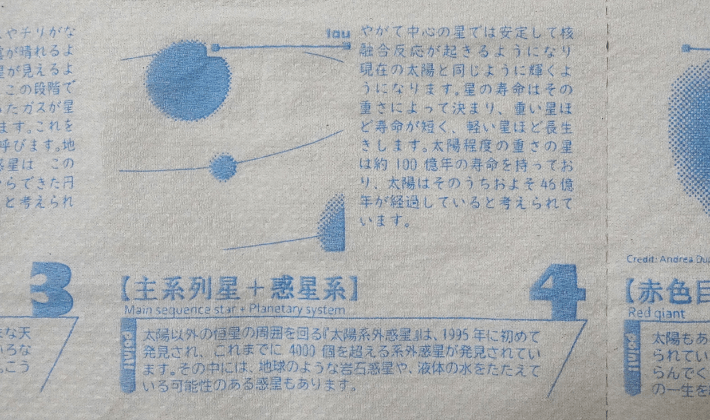 やチリがな
雲が晴れるよ
星が見えるよ
この段階で
たガスが星
ます。これを
呼びます。地
惑星は この
らできた円
と考えられ
3
な天
ろな
こう
iau
やがて中心の星では安定して核
融合反応が起きるようになり
現在の太陽と同じように輝くよ
うになります。星の寿命はその
重さによって決まり、重い星ほ
ど寿命が短く、軽い星ほど長生
きします。太陽程度の重さの星
は約 100 億年の寿命を持ってお
り、太陽はそのうちおよそ 46 億
年が経過していると考えられて
います。
【主系列星+惑星系】
Main sequence star + Planetary system
4
太陽以外の恒星の周囲を回る『太陽系外惑星』は、1995 年に初めて
発見され、これまでに 4000 個を超える系外惑星が発見されてい
ます。その中には、地球のような岩石惑星や、液体の水をたたえて
いる可能性のある惑星もあります。
Credit: Andrea Du
【赤色
Red giant
太陽もあ
られてい
らんでく
の一生を